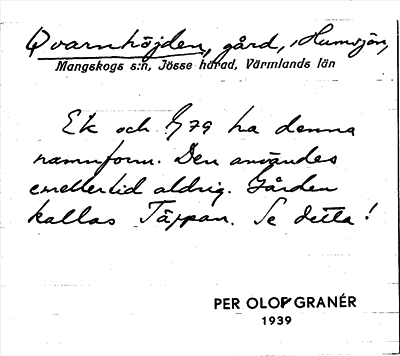 Qvarnhöjden, gård, i Humsjön,
Mangskogs s:n, Jösse härad, Värmlands län
Ek och G 79 ha denna
namnform. Den användes
emellertid aldrig. Gården
kallas Täppan. Se detta!
PER OLOF GRANÉR
1939